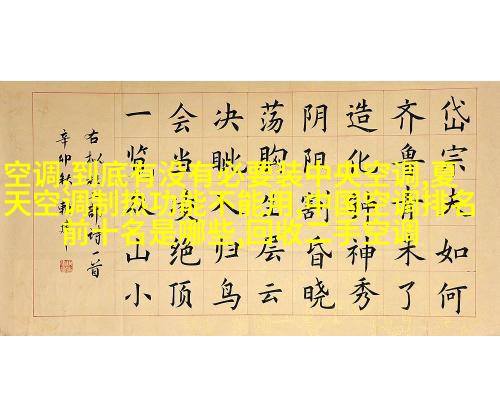 空调,到底有没有必要装中央空调,夏
天空调制热功能不能用,中国空调排名
前十名是哪些,回收二手空调
岱宗夫如何
齐鲁青未了
造化钟神秀
阴阳割昏晓
荡胸生层云
决眦入归鸟
会当凌绝顶
一览众山小
右杜工部诗一首
辛卯秋